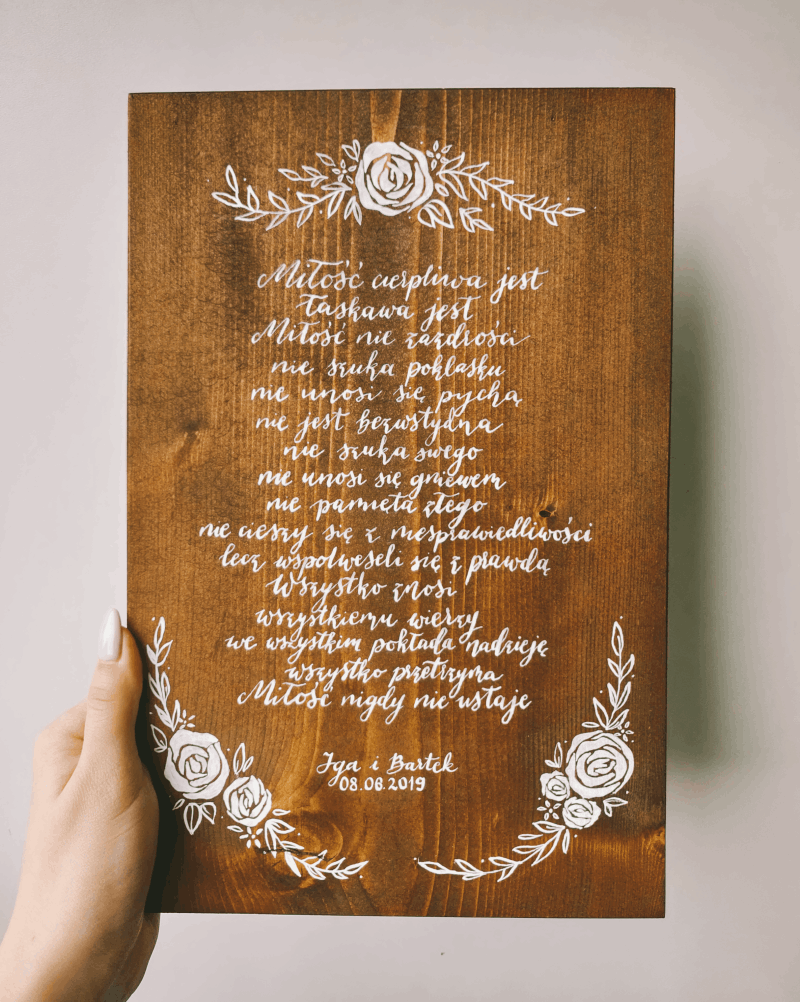 Miłość cierpliwa jest
łaskawa jest
Miłość nie zazdrości
nie szuka poklasku
nie unosi się pychą
nie jest bezwstydna
nie szuka swego
nie unosi się gniewem
nie pamięta złego
nie cieszy się z niesprawiedliwości
lecz wspolweseli się z prawdą
Wszystko znosi
wszystkiemu wierzy
we wszystkim pokłada nadzieję
wszystko przetrzyma
Miłość nigdy nie ustaje
Iga i Bartek
08.06.2019